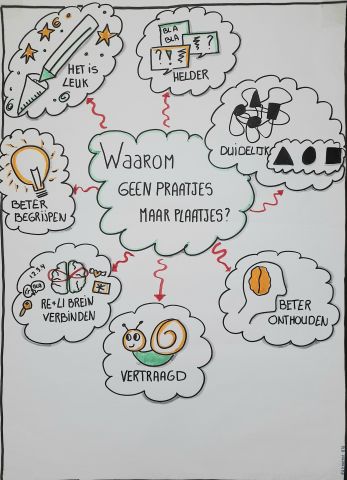 Waarom
GEEN PRAATJES
MAAR PLAATJES?
HET IS
LEUK
BLA
BLA
HELDER
DUIDELIJK
BETER
BEGRIJPEN
1 2 3 4
RE+LI BREIN
VERBINDEN
VERTRAAGD
BETER
ONTHOUDEN